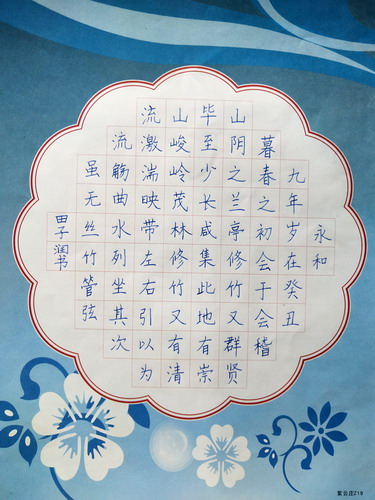 永和
九年岁在癸丑
暮春之初会于会稽
山阴之兰亭修竹又群贤
毕至少长咸集此地有崇
山峻岭茂林修竹又有清
流激湍映带左右引以为
流觞曲水列坐其次
虽无丝竹管弦
田子润书
紫云庄Z19